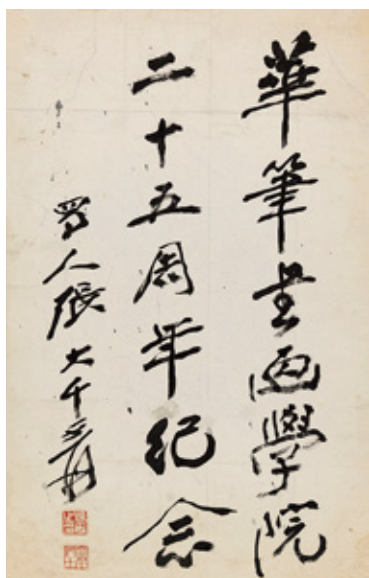 華筆書画學院
二十五周年紀念
蜀人張大千爰